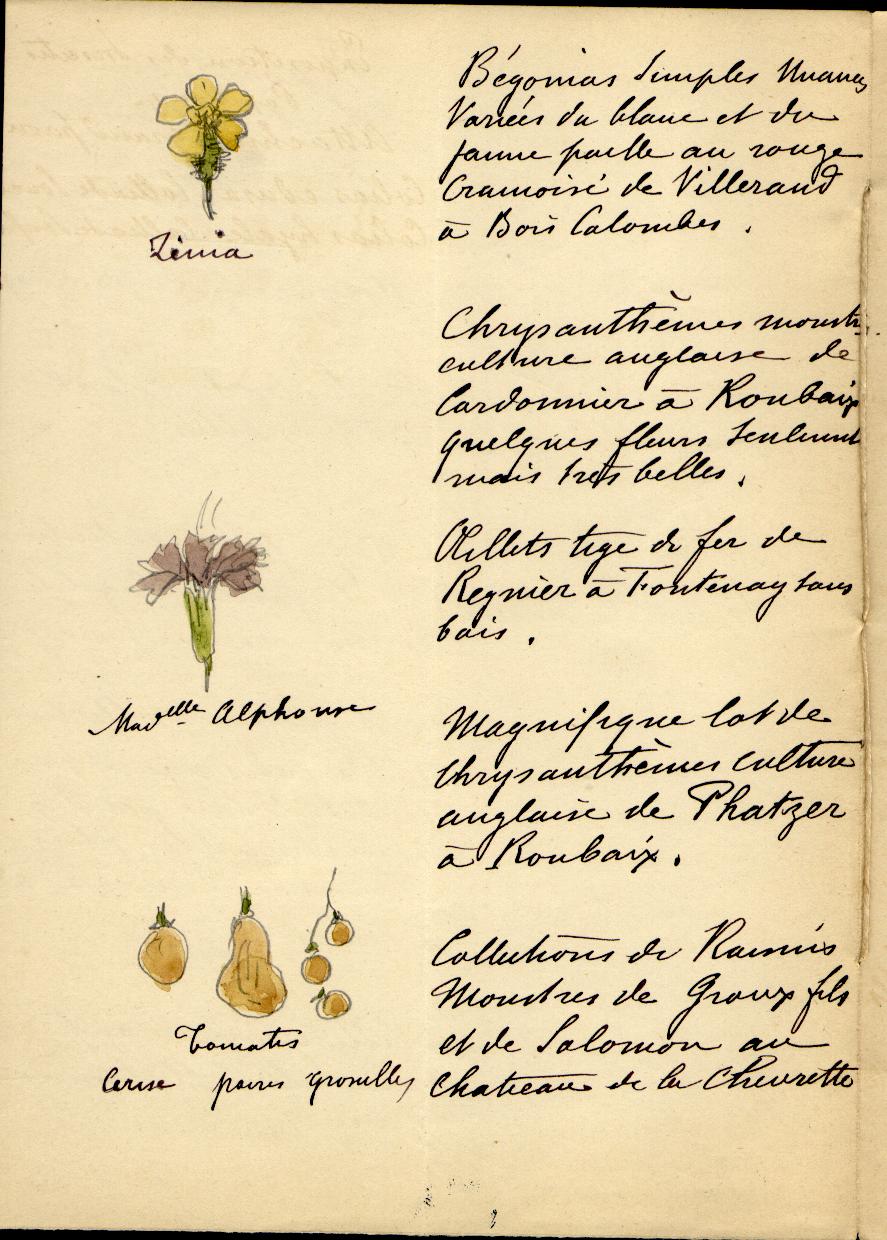 Zinia
Bégonias Simples Nuances
Variées du blanc et du
jaune paille au rouge
Cramoisi de Villeraud
à Bois Colombes .
Chrysanthèmes monstr
culture anglaise de
Cordonnier à Roubaix
quelques fleurs seulement
mais très belles .
Oeillets tige de fer de
Regnier à Fontenay sous
bois .
Mad^elle Alphonse
Magnifique lot de
Chrysanthèmes culture
anglaise de Phatzer
à Roubaix .
Tomates
Cerise poires groseilles
Collections de Raisins
Monstres de Groux fils
et de Salomon au
Chateau de la Chevrette